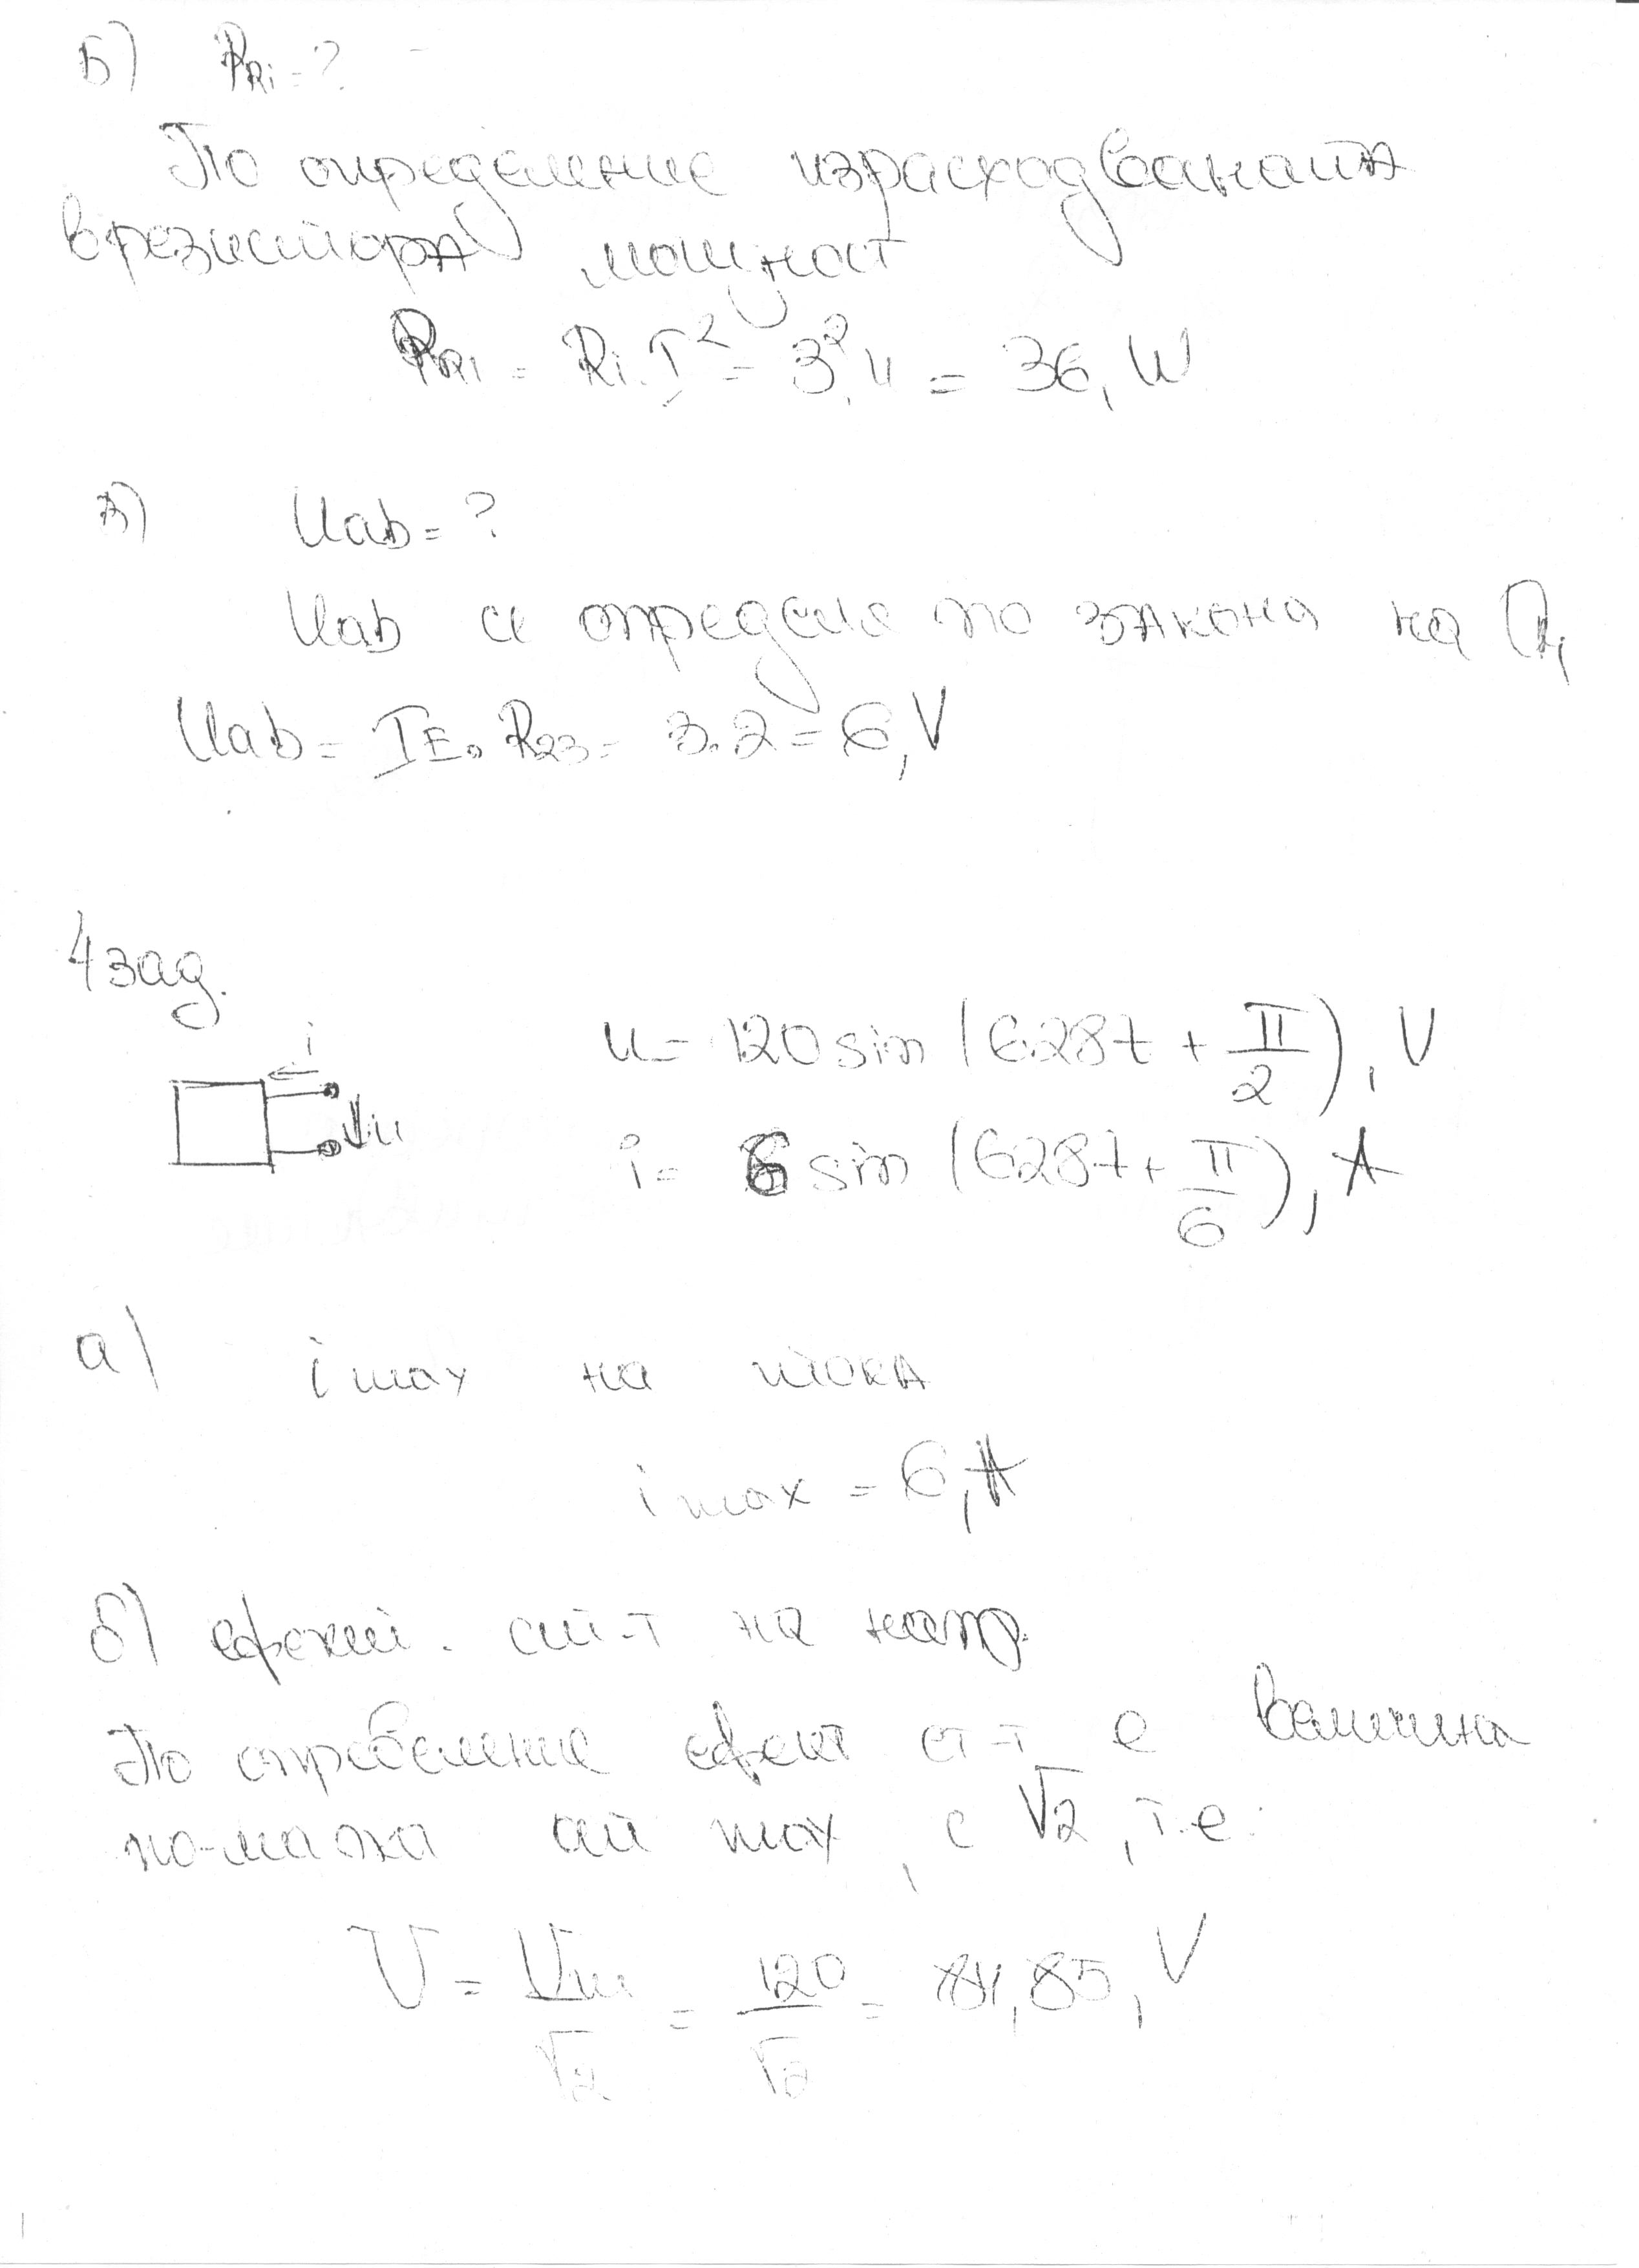 б) P_R1 = ?
По определение израсходваната
в резистора мощност
P_R1 = R1.I² = 3².4 = 36, W
в) Uab = ?
Uab се определя по закона на Ω,
Uab = I_E.R23 = 3.2 = 6, V
4 зад.
i
u
u = 120 sin (628t + π/2), V
i = 6 sin (628t + π/6), A
а) i max на тока
i max = 6, A
б) ефект. ст-т на напр.
По определение ефект ст-т е величина
по-малка от max, с √2, т.е.
U = Um/√2 = 120/√2 = 84,85, V